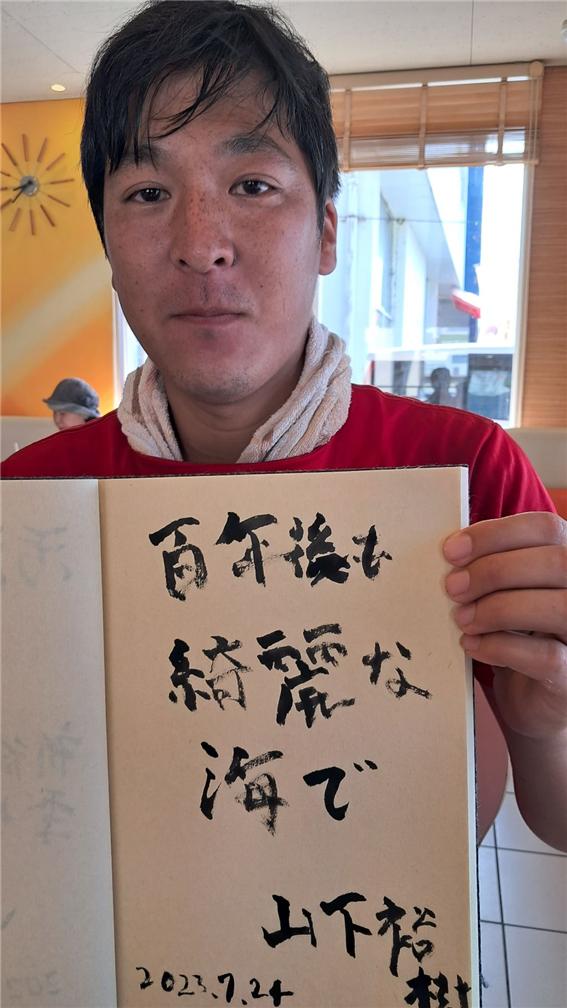 百年後も
綺麗な
海で
山下裕
樹
2023.7.24